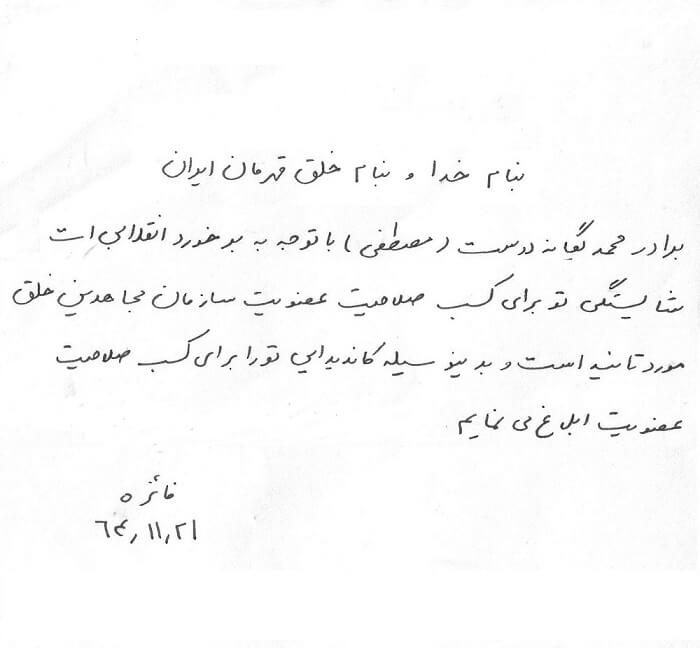 بنام خدا و بنام خلق قهرمان ایران
برادر محمد یگانه دوست (مصطفی) با توجه به برخورد انقلابی ات
شایستگی تو برای کسب صلاحیت عضویت سازمان مجاهدین خلق
مورد تائید است و بدینوسیله کاندیدایی تو را برای کسب صلاحیت
عضویت ابلاغ می نمایم
فائزه
۶۴٫۱۱٫۲۱